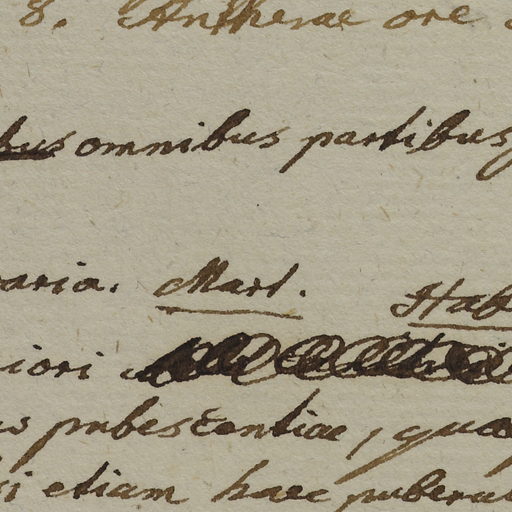 8. Antherae ore
bus omnibus partibus
aria. Mart. Hab
iori
us pubescentiae, quae
si etiam haec puberul